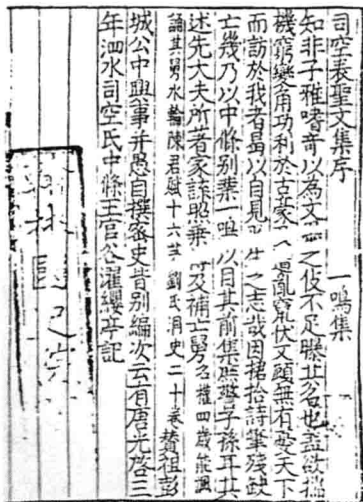 司空表聖文集序 一鳴集
知非子雅嗜奇以為文 之伎不足曝其名也盖欲揣
機窮變角功利於古豪 遭亂竄伏又顧無有憂天下
而訪於我者曷以自見 生之志哉因捃拾詩筆殘缺
亡幾乃以中條別業一鳴 以目其前集庶警子孫耳其
述先大夫所著家諜照乗 及補亡舅名權四歲能諷
誦其舅水輪陳君賦十六 劉氏洞史二十卷 贊祖彭
城公中興事并愚自撰密史皆別編次云有唐光啓三
年泗水司空氏中條王官谷濯纓亭記